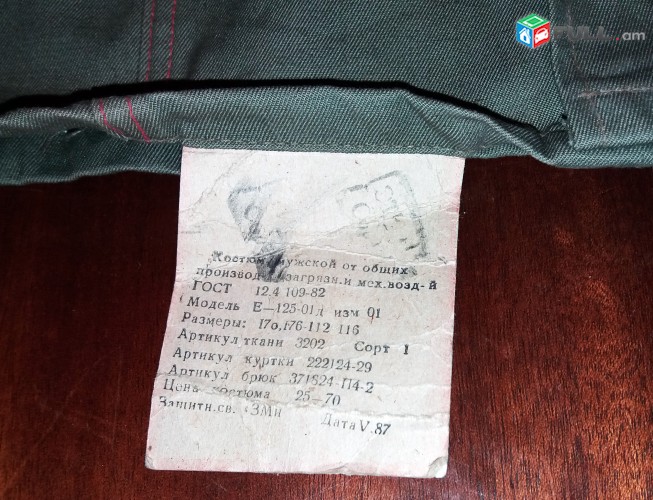 .am
Костюм мужской от общих
производ. загрязн. и мех. возд-й
ГОСТ 12.4 109-82
Модель Е—125-01д изм 01
Размеры: 170,176-112 116
Артикул ткани 3202 Сорт 1
Артикул куртки 222124-29
Артикул брюк 371824-П4-2
Цена костюма 25—70
Защитн.св. ЗМи Дата V.87